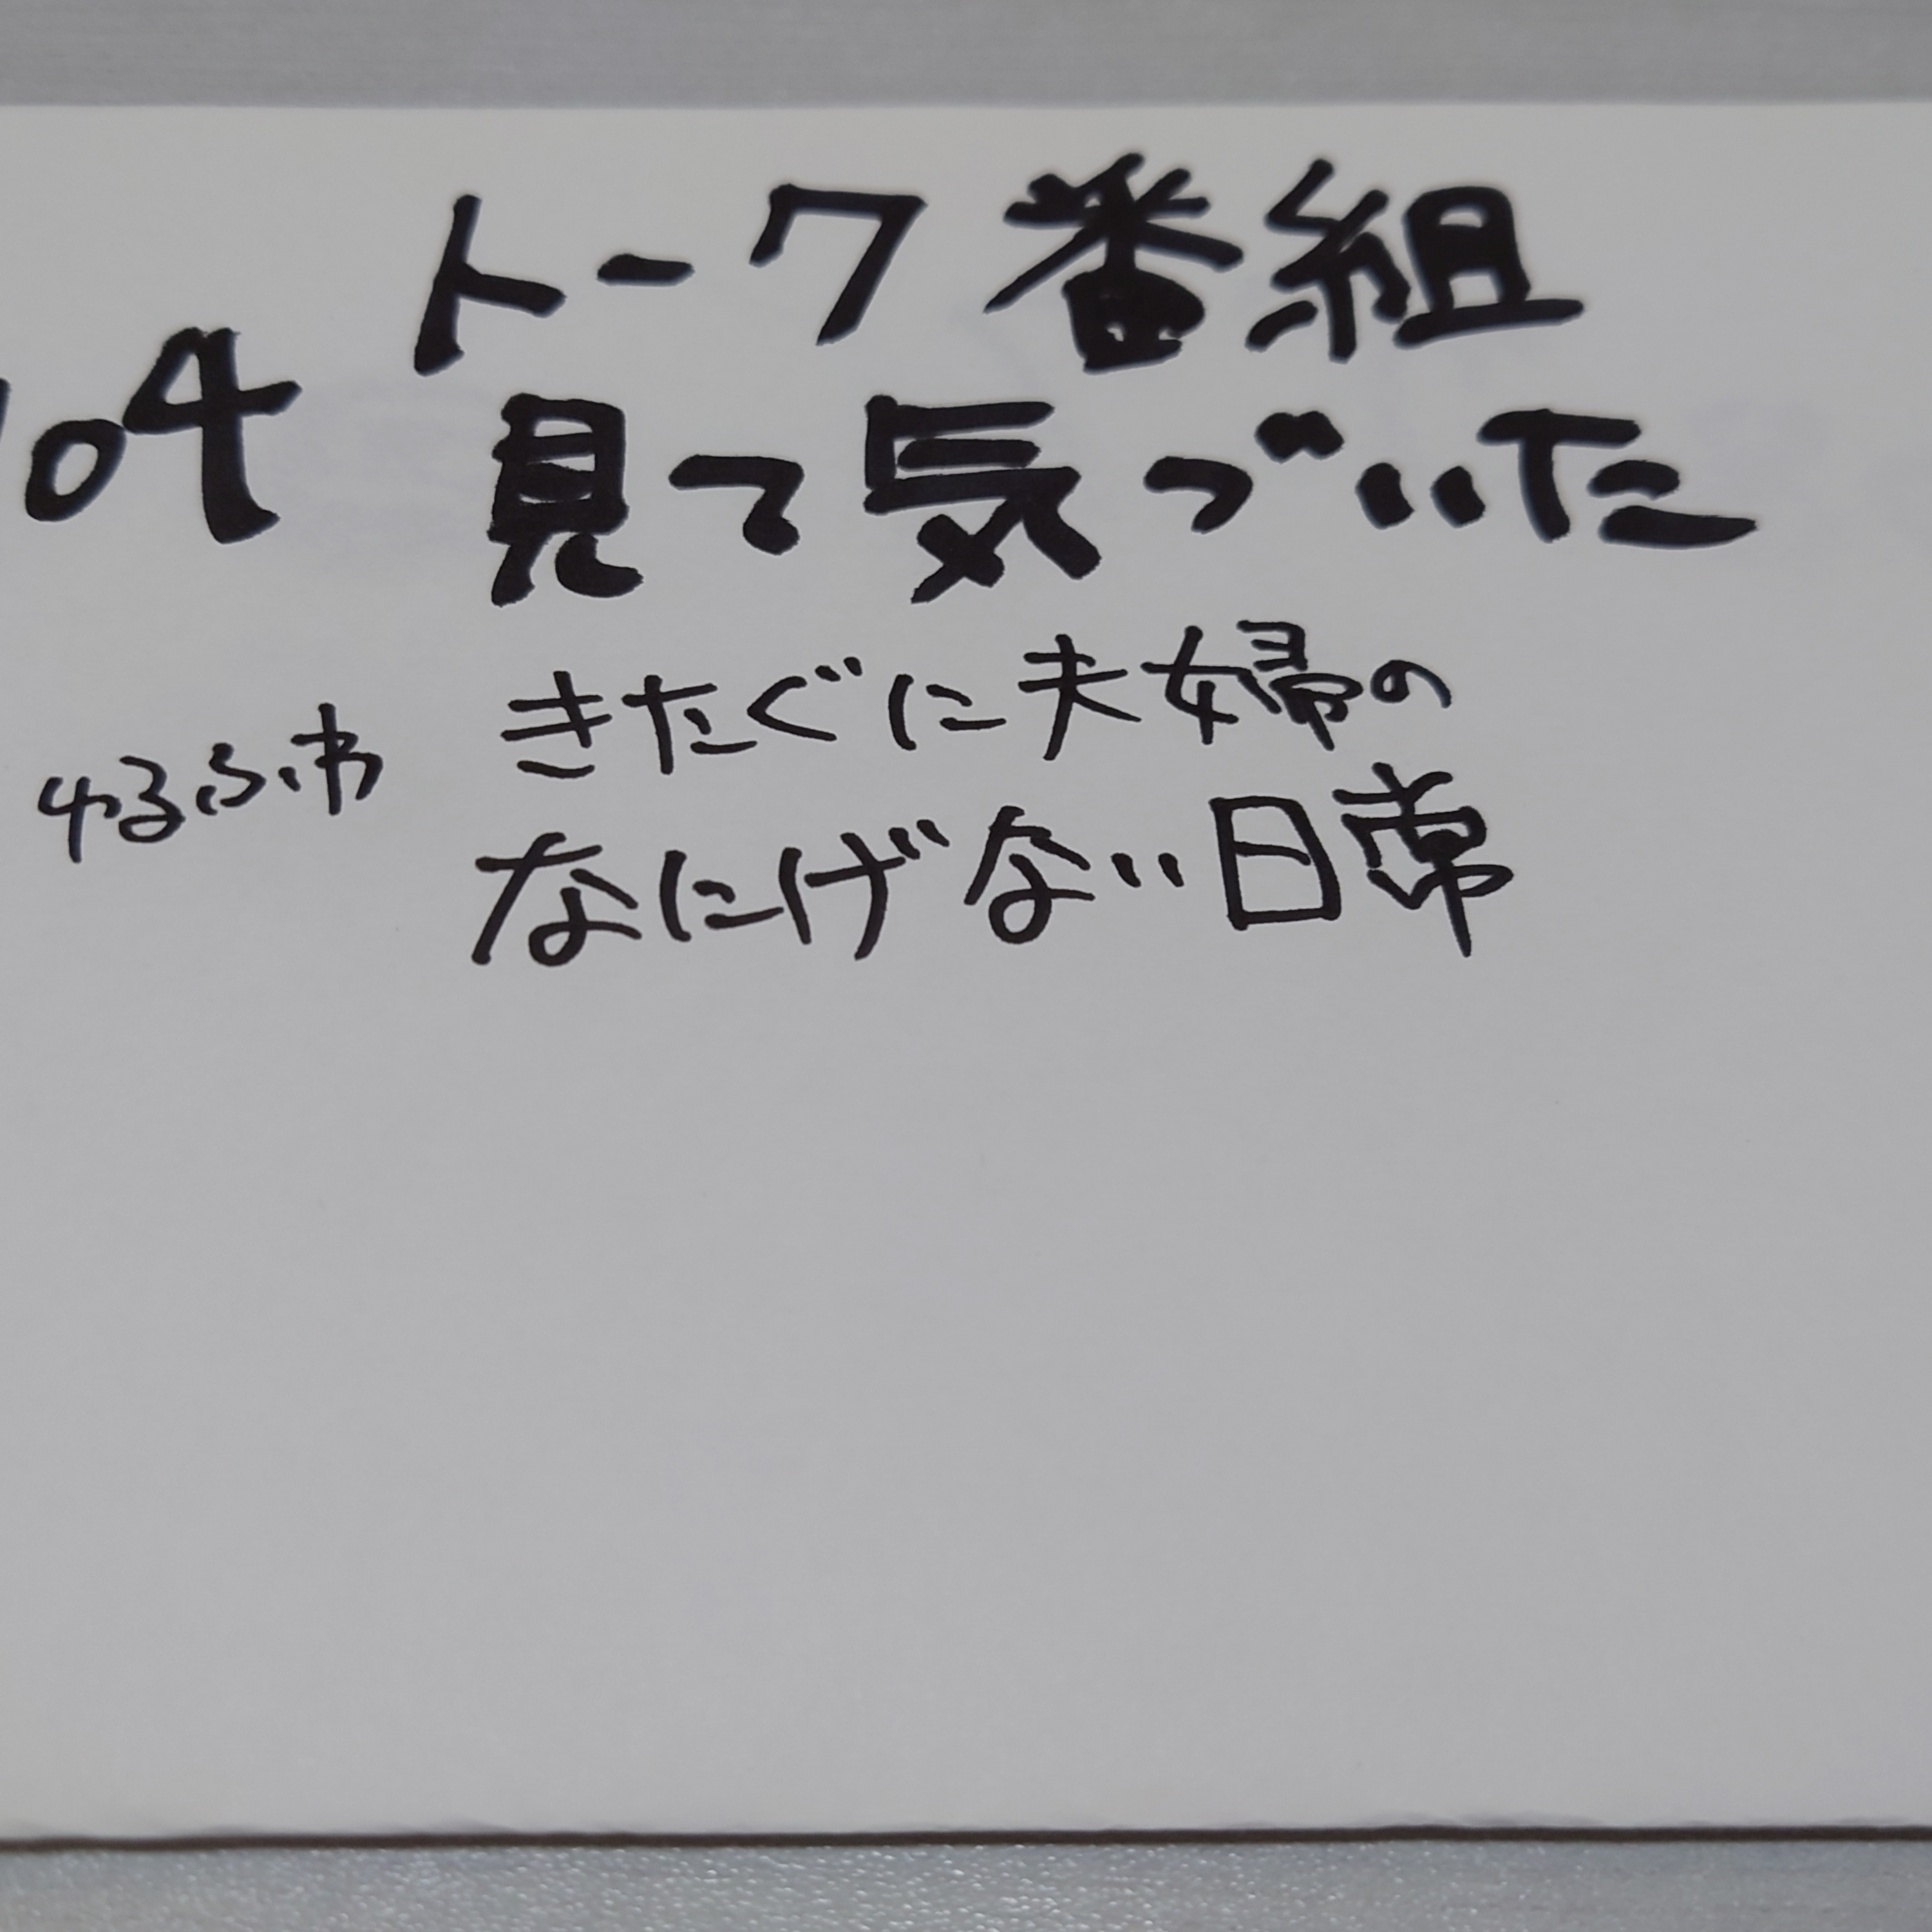 トーク番組
104 見て気づいた
ゆるふわ きたぐに夫婦の
なにげない日常